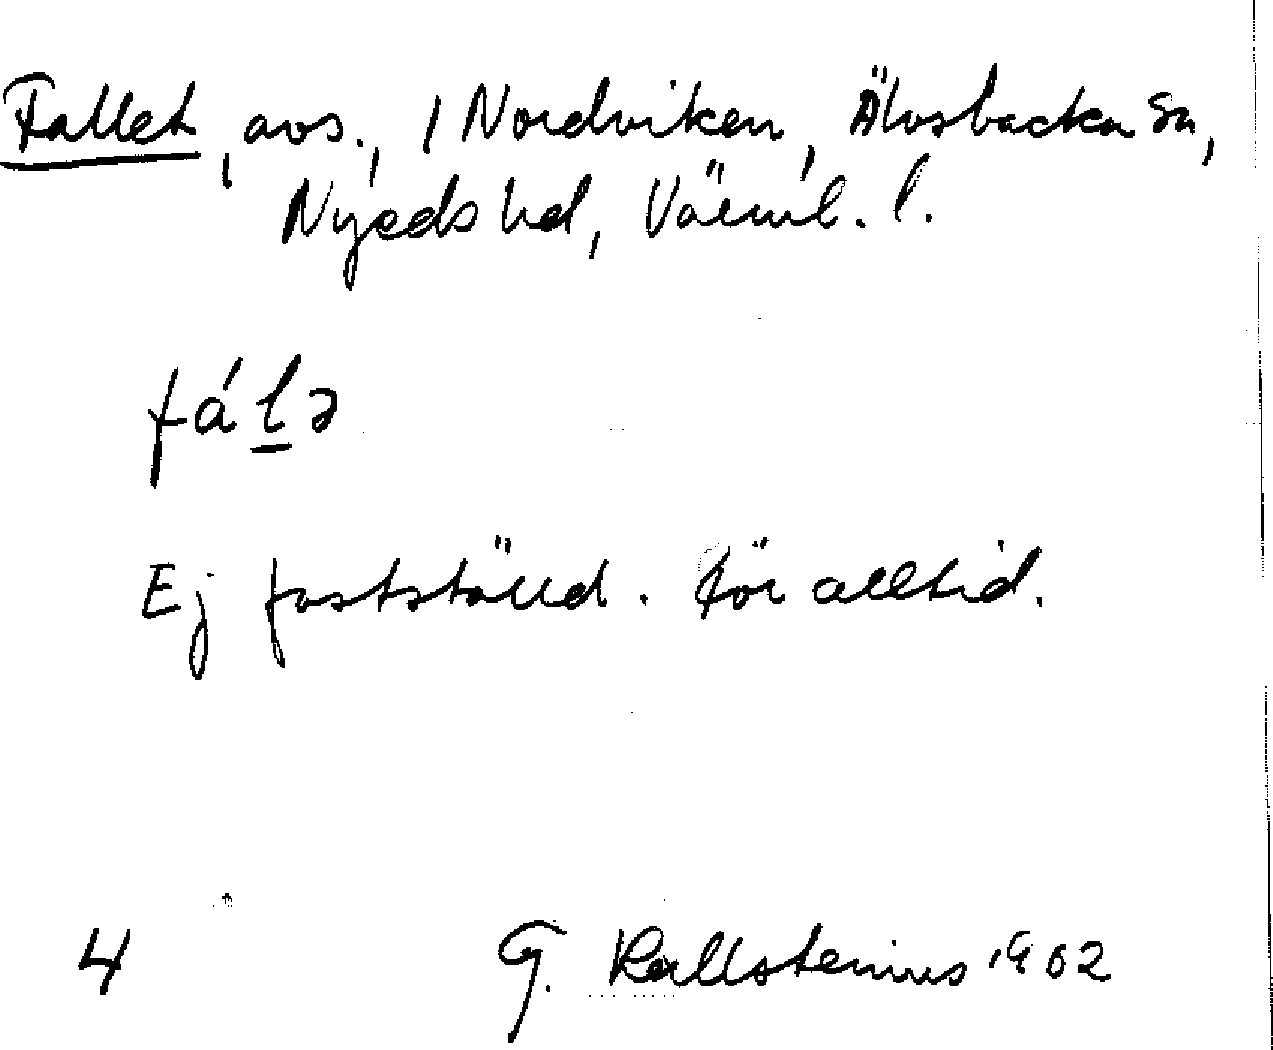 Fallet, avs., i Nordviken, Älvsbacka sn,
Nyeds hd, Värml. l.
fá l̲ə
Ej fastställd. För alltid.
4 G. Kallstenius 1902